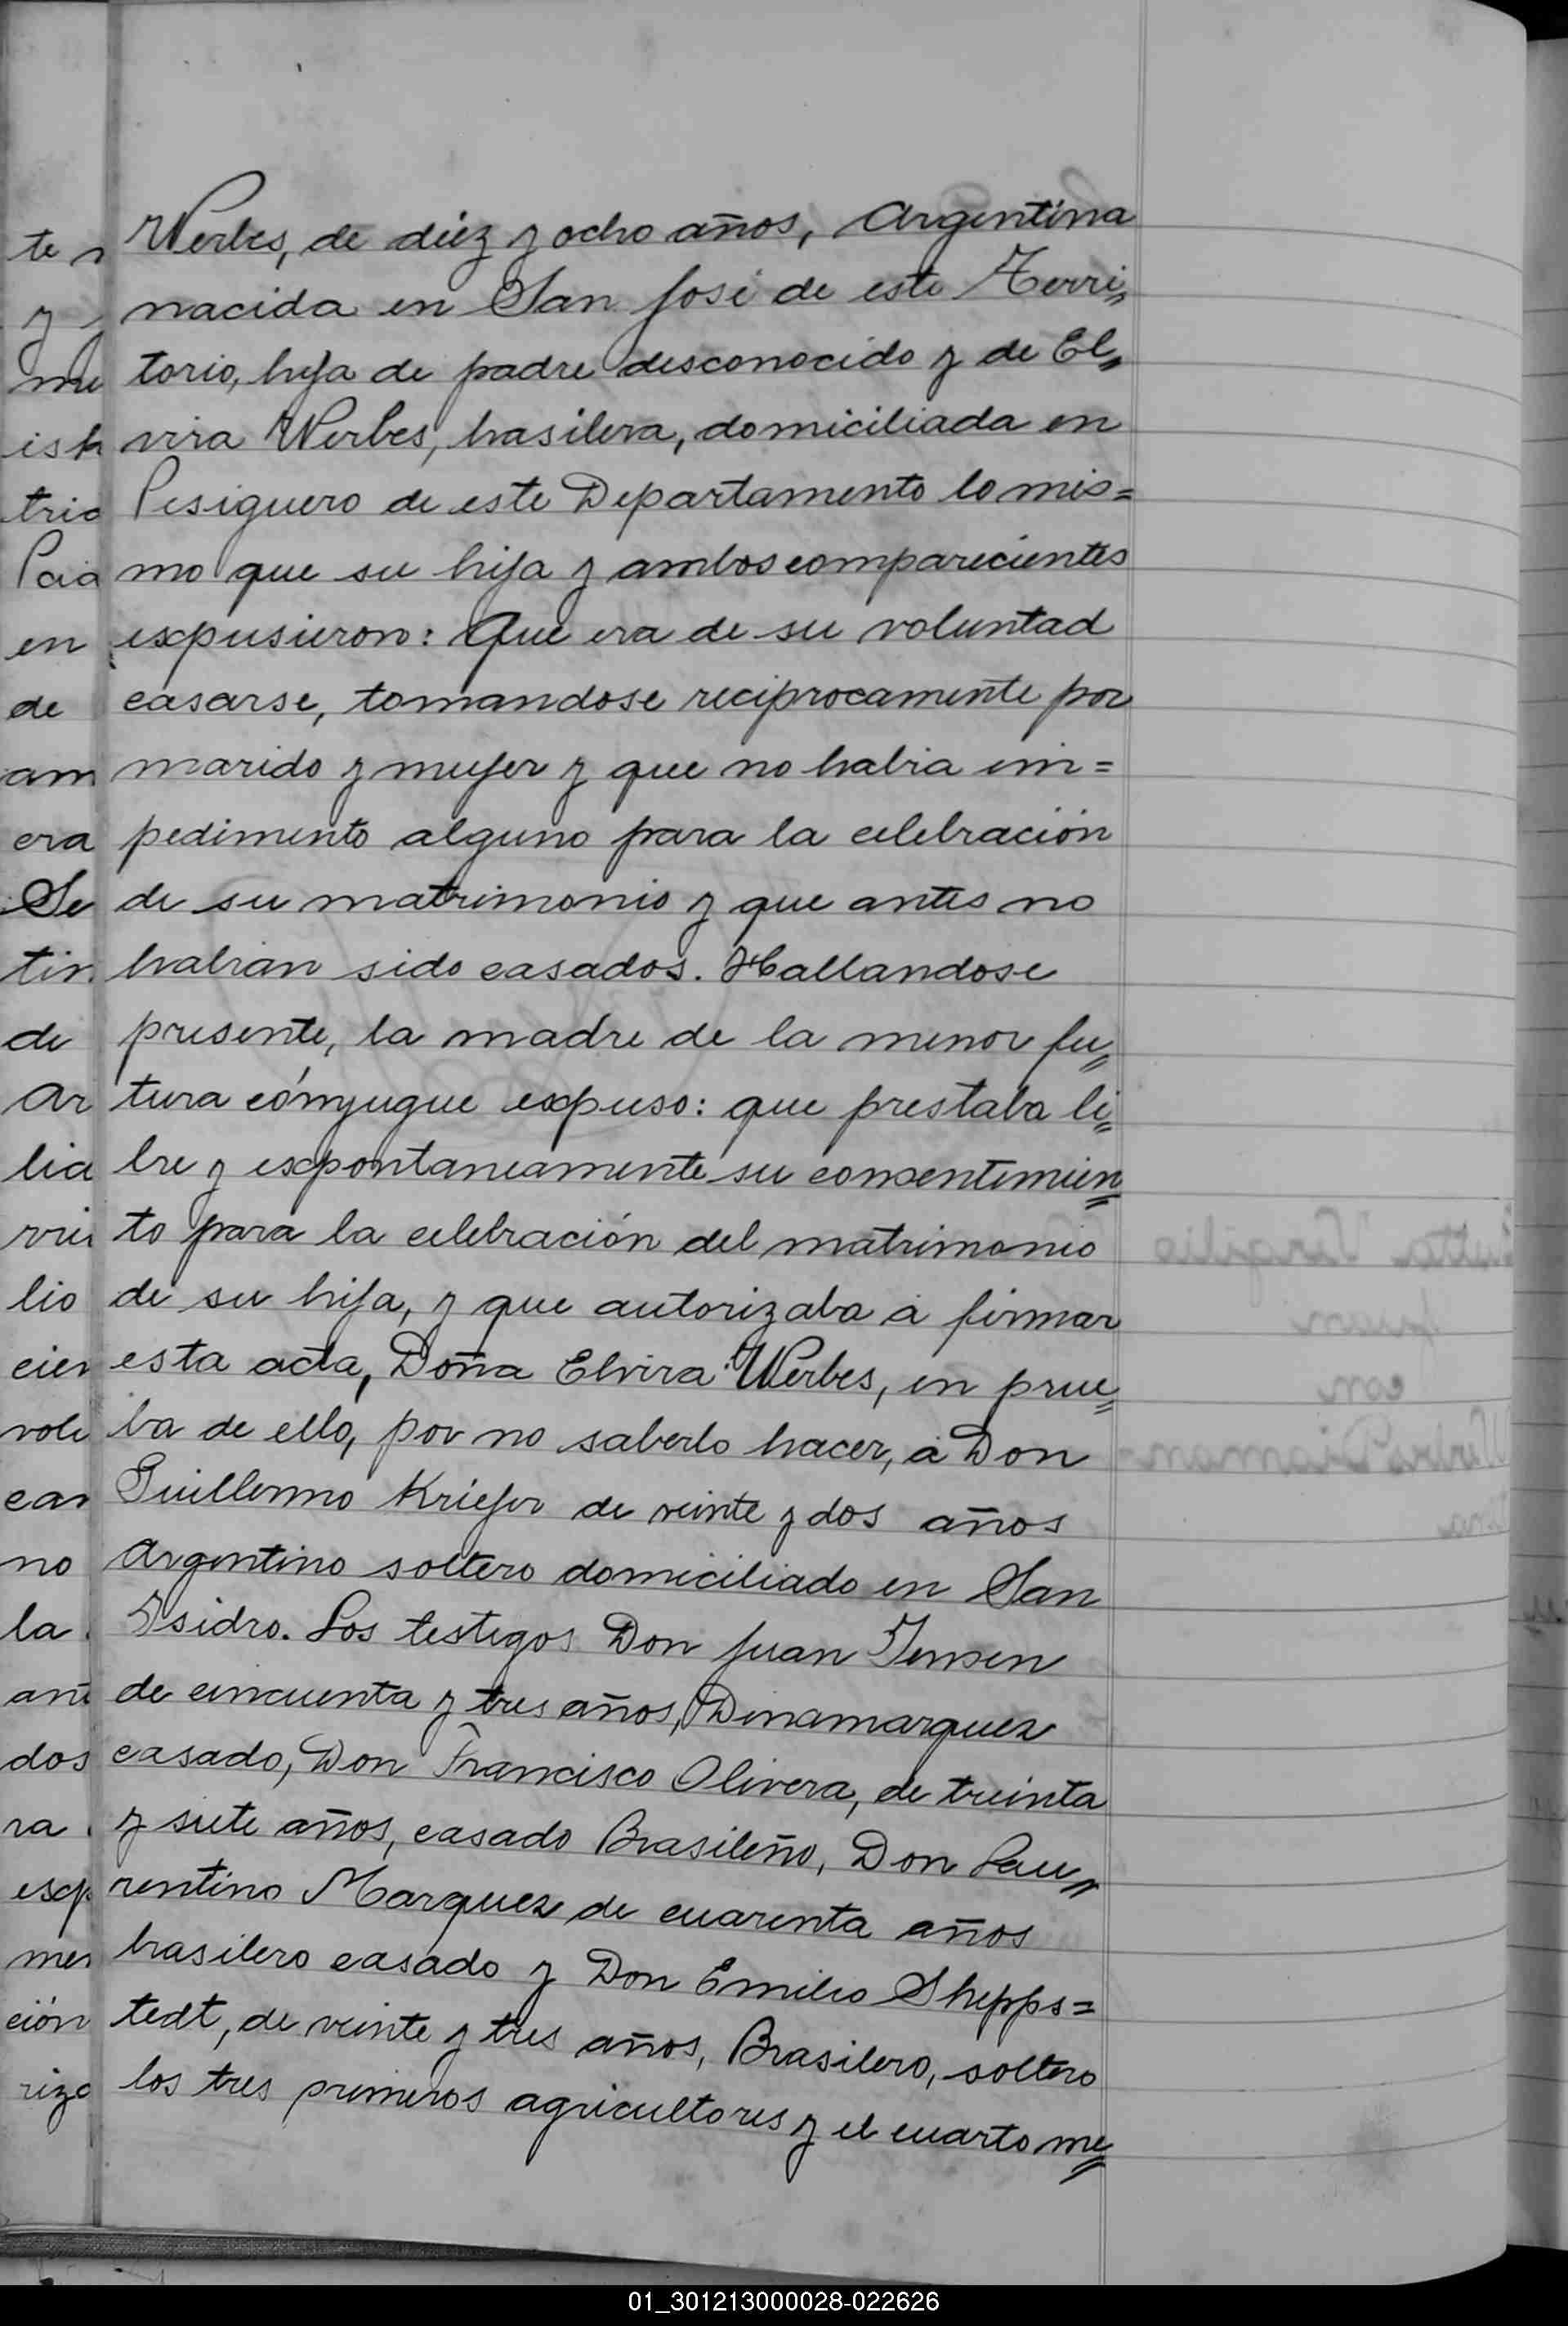 Werbes, de diez y ocho años, Argentina
nacida en San José de este Terri„
torio, hija de padre desconocido y de El„
vira Werbes, brasilera, domiciliada en
Pesiguero de este Departamento lo mis=
mo que su hija y ambos comparecientes
expusieron: Que era de su voluntad
casarse, tomandose reciprocamente por
marido y mujer y que no habia im=
pedimento alguno para la celebración
de su matrimonio y que antes no
habian sido casados. Hallandose
presente, la madre de la menor fu„
tura cónyugue expuso: que prestaba li„
bre y expontaneamente su consentimien„
to para la celebración del matrimonio
de su hija, y que autorizaba á firmar
esta acta, Doña Elvira Werbes, en prue„
ba de ello, por no saberlo hacer, á Don
Guillermo Krieser de veinte y dos años
Argentino soltero domiciliado en San
Isidro. Los testigos Don Juan Jensen
de cincuenta y tres años, Dinamarquez
casado, Don Francisco Olivera, de treinta
y siete años, casado Brasileño, Don Lau„
rentino Marquez de cuarenta años
brasilero casado y Don Emilio Shepps=
tedt, de veinte y tres años, Brasilero, soltero
los tres primeros agricultores y el cuarto me„
01_301213000028-022626